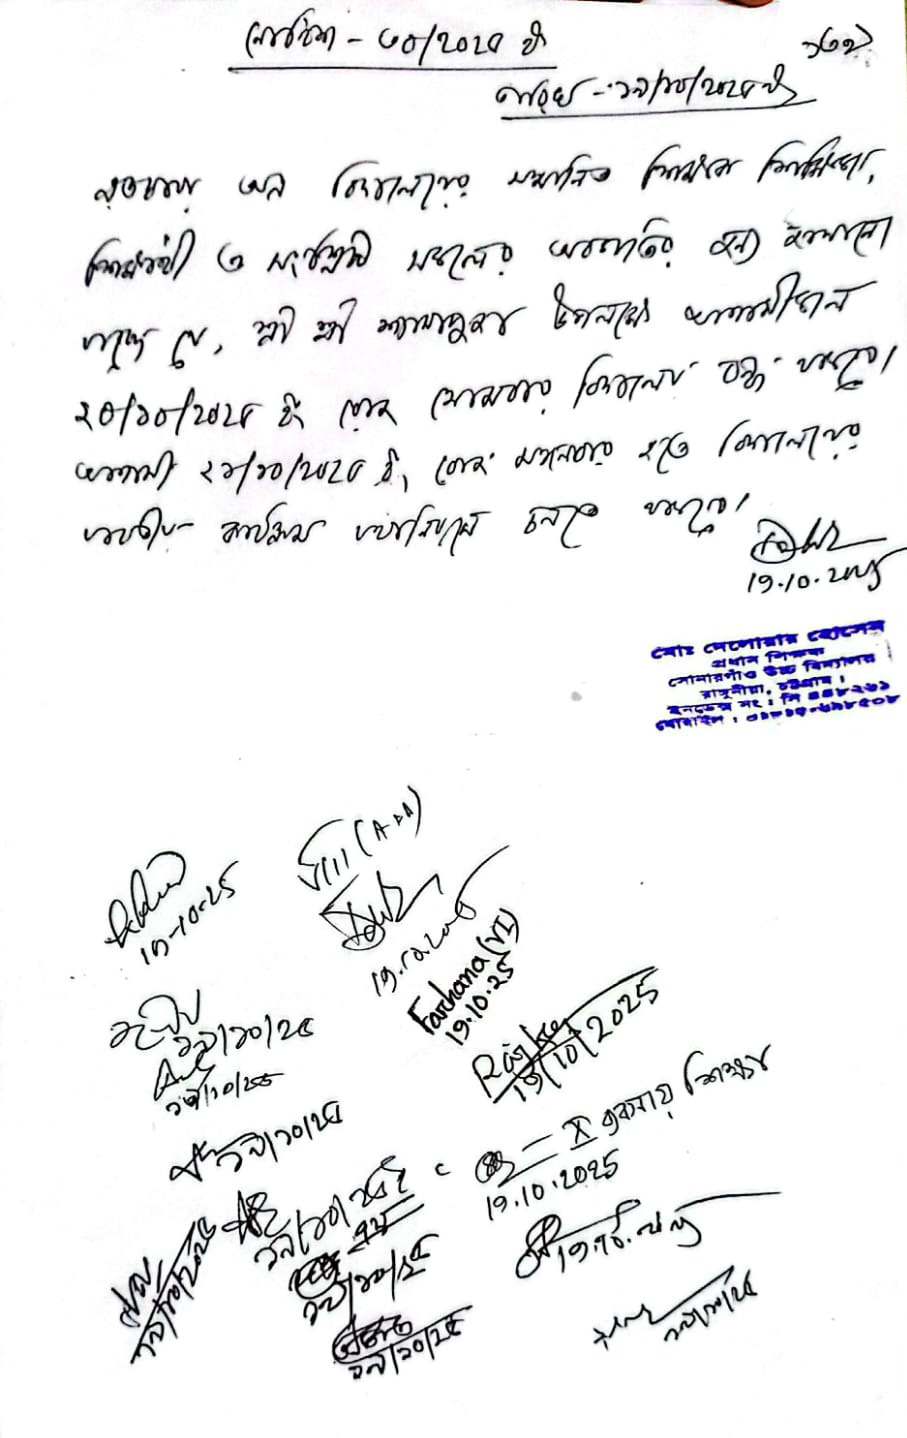 নোটিশ - ৩০/২০২৫ ইং
তারিখ - ১৯/১০/২০২৫ ইং
এতদ্বারা অত্র বিদ্যালয়ের সম্মানিত শিক্ষক শিক্ষিকা,
শিক্ষার্থী ও সংশ্লিষ্ট সকলের অবগতির জন্য জানানো
যাচ্ছে যে, শ্রী শ্রী শ্যামাপূজা উপলক্ষে আগামীকাল
২০/১০/২০২৫ ইং রোজ সোমবার বিদ্যালয় বন্ধ থাকবে।
আগামী ২১/১০/২০২৫ ইং রোজ মঙ্গলবার হতে বিদ্যালয়ের
যাবতীয় কার্যক্রম যথানিয়মে চলতে থাকবে।
19.10.২০২৫
মোঃ দেলোয়ার হোসেন
প্রধান শিক্ষক
সোনারগাঁও উচ্চ বিদ্যালয়
রাঙ্গুনীয়া, চট্টগ্রাম।
ইনডেক্স নং :
মোবাইল :
VIII (A+A)
19-10-25
19.10.২০২৫
Farhana (VI)
19.10.25
১৯/১০/২৫
19/10/2025
১৯/১০/২৫
১৯/১০/২৫
X ব্যবসায় শিক্ষা
19.10.2025
১৯/১০/২৫
১৯/১০/২০২৫
১৯/১০/২৫
১৯/১০/২৫
১৯/১০/২৫